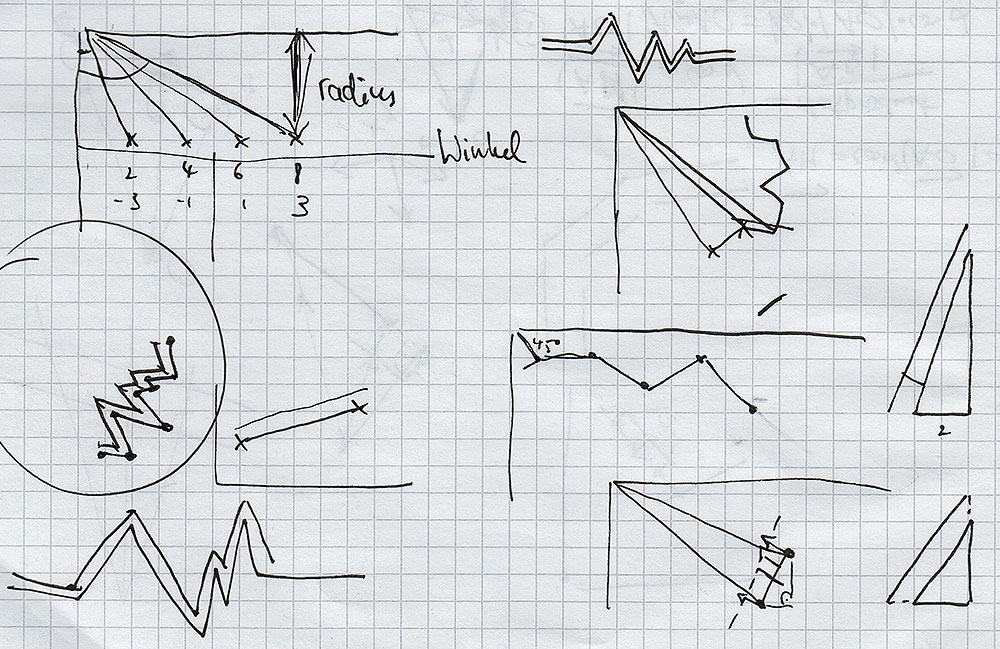 radius
Winkel
2 4 6 8
-3 -1 1 3
45°
2